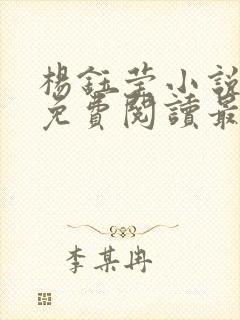 楊鈺莹小說
免費閱讀最
李某冉